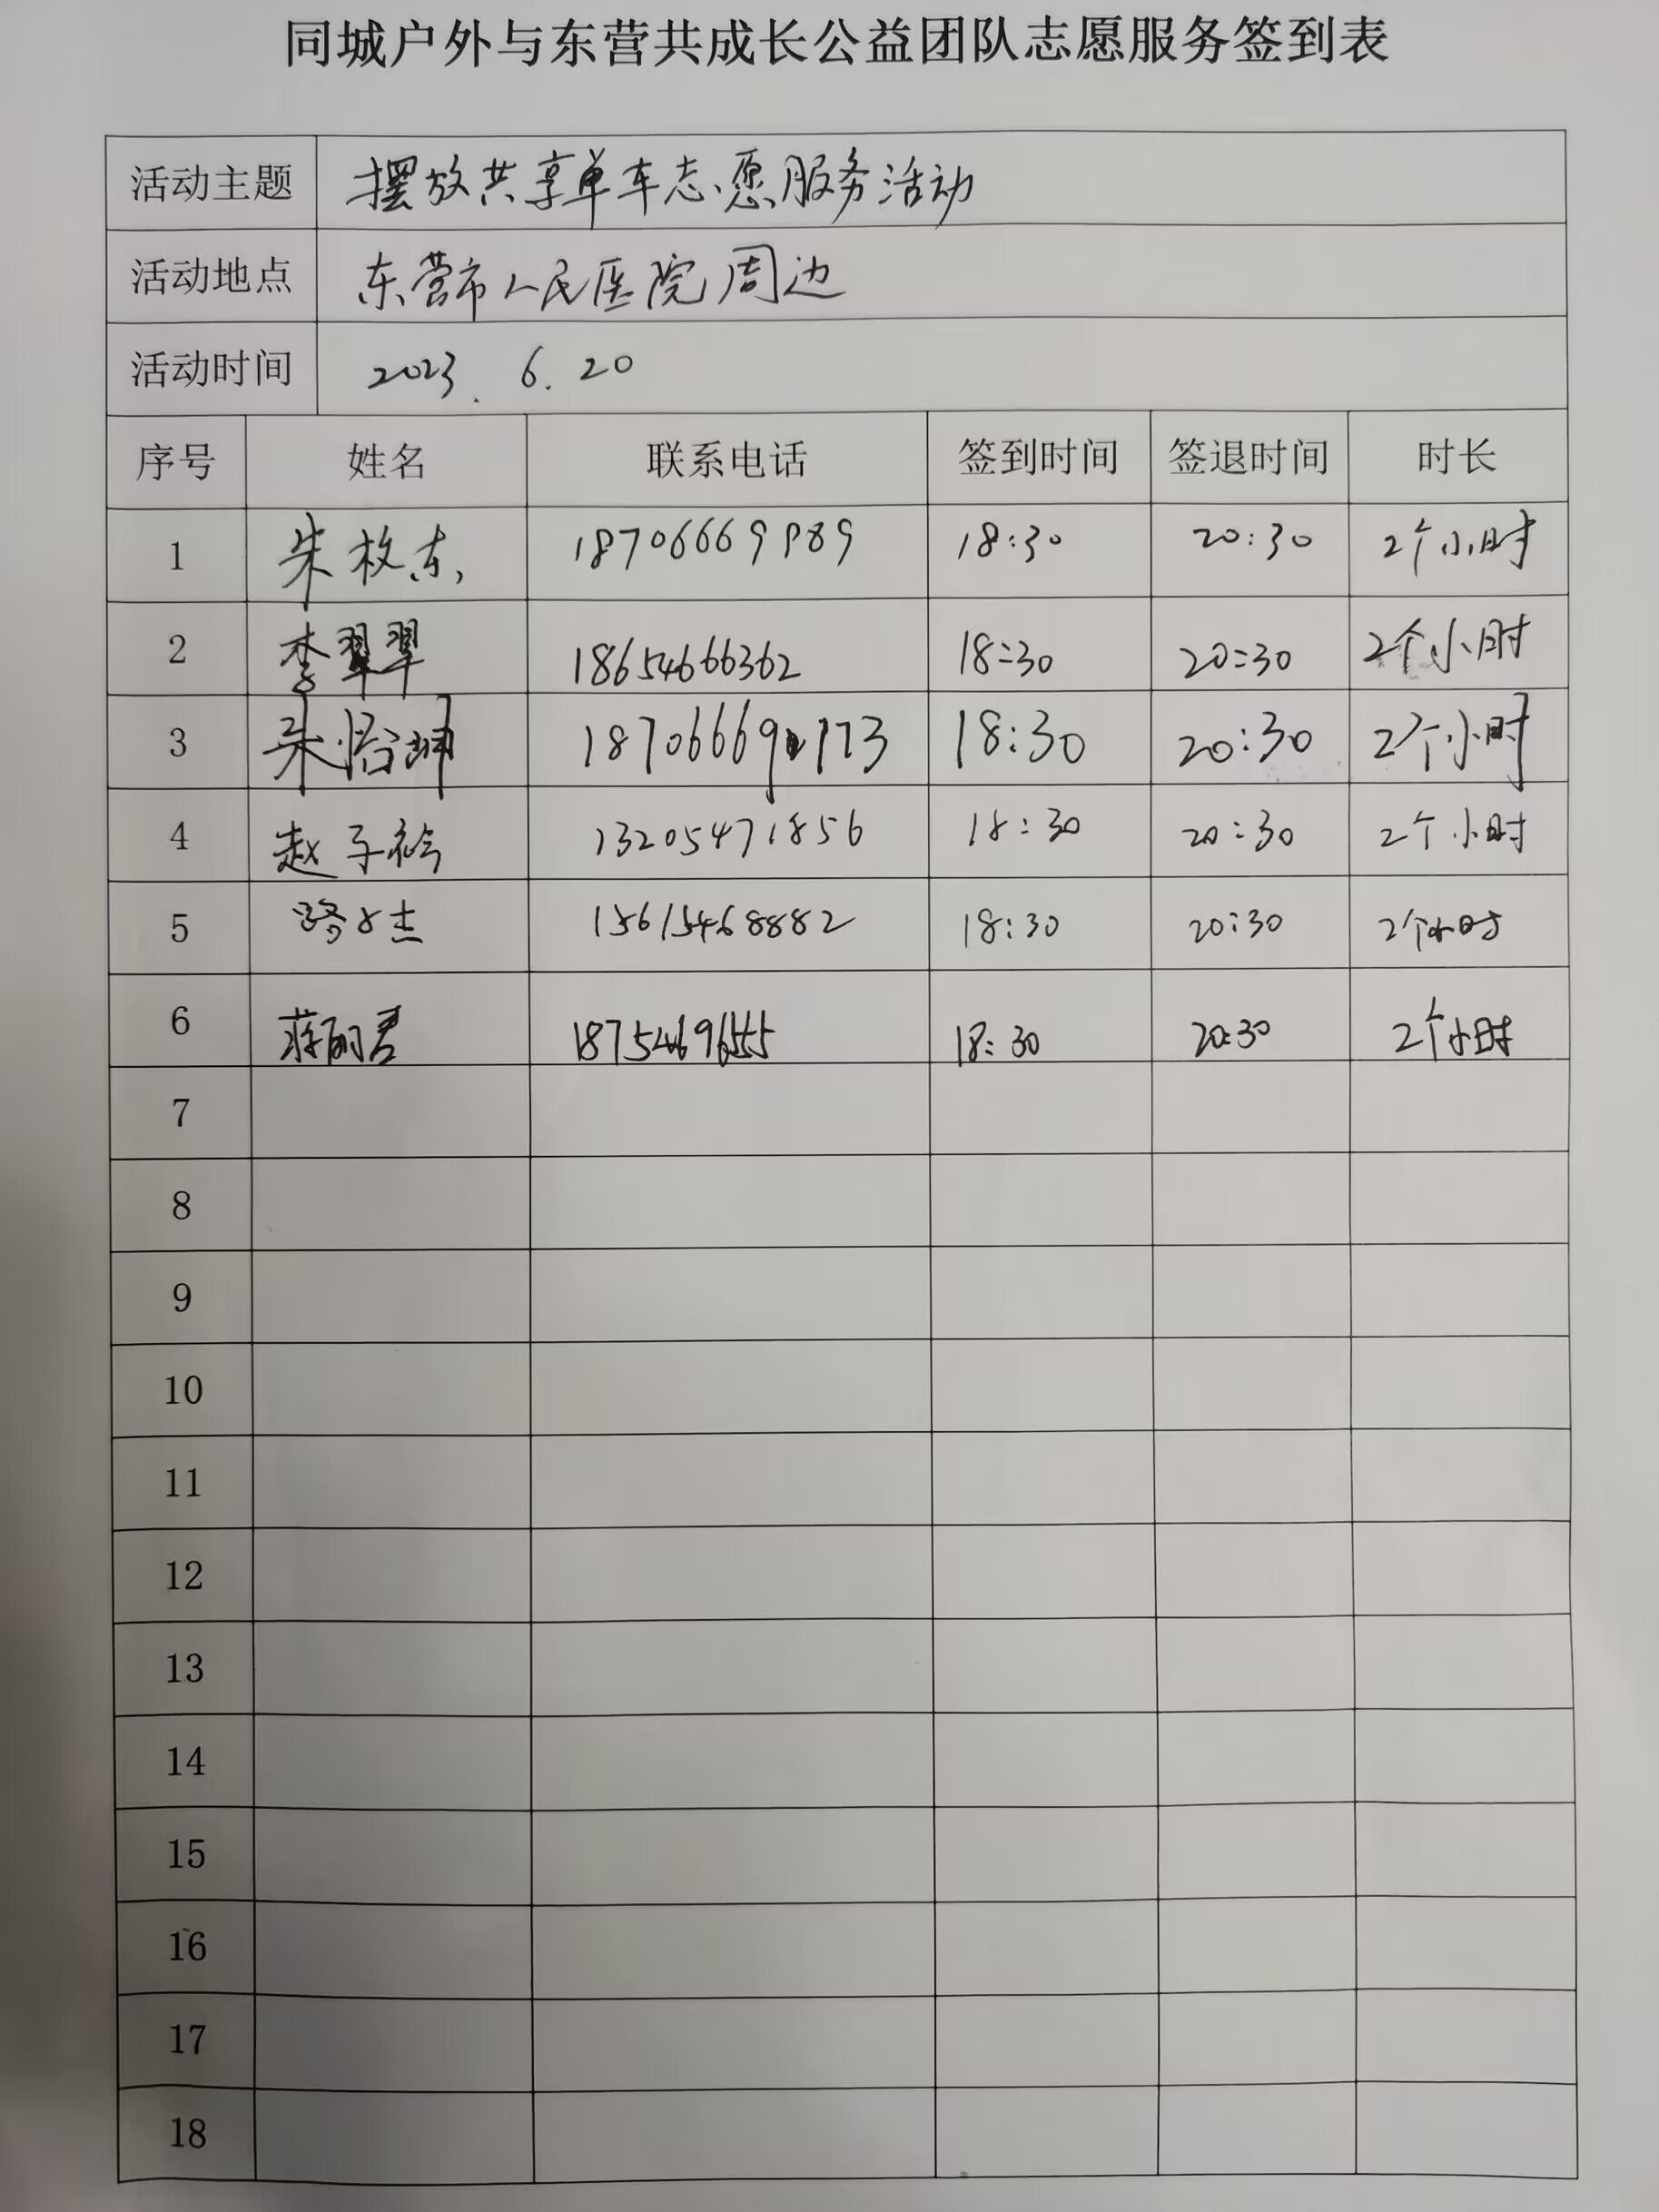 同城户外与东营共成长公益团队志愿服务签到表
活动主题 摆放共享单车志愿服务活动
活动地点 东营市人民医院周边
活动时间 2023.6.20
序号 姓名 联系电话 签到时间 签退时间 时长
1 朱枚东 18706669989 18:30 20:30 2个小时
2 李翠翠 18654666362 18:30 20:30 2个小时
3 朱怡坤 18:30 20:30 2个小时
4 赵子衿 13205471856 18:30 20:30 2个小时
5 15615468882 18:30 20:30 2个小时
6 蒋丽君 18:30 20:30 2个小时
7
8
9
10
11
12
13
14
15
16
17
18